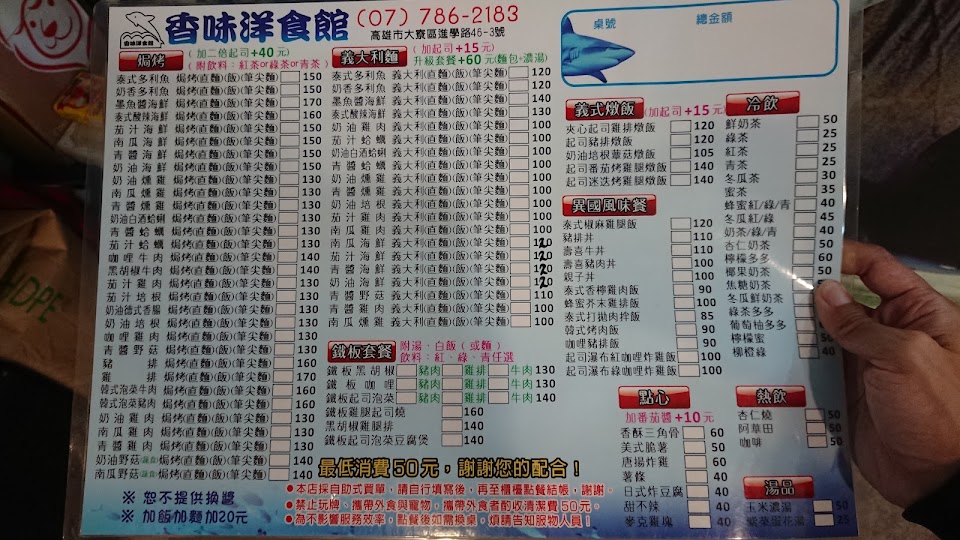 香味洋食館 (07) 786-2183
香味洋食館
高雄市大寮區進學路46-3號
桌號 總金額
焗烤 (加二倍起司+40元)
(附飲料:紅茶or綠茶or青茶)
泰式多利魚 焗烤(直麵)(飯)(筆尖麵) 150
奶香多利魚 焗烤(直麵)(飯)(筆尖麵) 150
墨魚醬海鮮 焗烤(直麵)(飯)(筆尖麵) 170
泰式酸辣海鮮 焗烤(直麵)(飯)(筆尖麵) 160
茄汁海鮮 焗烤(直麵)(飯)(筆尖麵) 150
南瓜海鮮 焗烤(直麵)(飯)(筆尖麵) 150
青醬海鮮 焗烤(直麵)(飯)(筆尖麵) 150
奶油海鮮 焗烤(直麵)(飯)(筆尖麵) 150
奶油燻雞 焗烤(直麵)(飯)(筆尖麵) 130
南瓜燻雞 焗烤(直麵)(飯)(筆尖麵) 130
青醬燻雞 焗烤(直麵)(飯)(筆尖麵) 130
奶油白酒蛤蜊 焗烤(直麵)(飯)(筆尖麵) 130
青醬蛤蠣 焗烤(直麵)(飯)(筆尖麵) 130
茄汁蛤蠣 焗烤(直麵)(飯)(筆尖麵) 130
咖哩牛肉 焗烤(直麵)(飯)(筆尖麵) 140
黑胡椒牛肉 焗烤(直麵)(飯)(筆尖麵) 140
茄汁雞肉 焗烤(直麵)(飯)(筆尖麵) 130
茄汁培根 焗烤(直麵)(飯)(筆尖麵) 130
奶油德式香腸 焗烤(直麵)(飯)(筆尖麵) 130
奶油培根 焗烤(直麵)(飯)(筆尖麵) 130
咖哩雞肉 焗烤(直麵)(飯)(筆尖麵) 130
青醬野菇 焗烤(直麵)(飯)(筆尖麵) 130
豬排 焗烤(直麵)(飯)(筆尖麵) 160
雞排 焗烤(直麵)(飯)(筆尖麵) 170
韓式泡菜牛肉 焗烤(直麵)(飯)(筆尖麵) 160
韓式泡菜豬肉 焗烤(直麵)(飯)(筆尖麵) 160
奶油雞肉 焗烤(直麵)(飯)(筆尖麵) 130
南瓜雞肉 焗烤(直麵)(飯)(筆尖麵) 130
青醬雞肉 焗烤(直麵)(飯)(筆尖麵) 130
奶油野菇 焗烤(直麵)(飯)(筆尖麵) 140
南瓜野菇 焗烤(直麵)(飯)(筆尖麵) 140
※ 恕不提供換醬
※ 加飯加麵加20元
義大利麵 (加起司+15元)
升級套餐+60元(麵包+濃湯)
泰式多利魚 義大利(直麵)(飯)(筆尖麵) 120
奶香多利魚 義大利(直麵)(飯)(筆尖麵) 120
墨魚醬海鮮 義大利(直麵)(飯)(筆尖麵) 140
泰式酸辣海鮮 義大利(直麵)(飯)(筆尖麵) 130
奶油雞肉 義大利(直麵)(飯)(筆尖麵) 100
茄汁蛤蠣 義大利(直麵)(飯)(筆尖麵) 100
奶油白酒蛤蜊 義大利(直麵)(飯)(筆尖麵) 100
青醬蛤蠣 義大利(直麵)(飯)(筆尖麵) 100
奶油燻雞 義大利(直麵)(飯)(筆尖麵) 100
青醬燻雞 義大利(直麵)(飯)(筆尖麵) 100
奶油培根 義大利(直麵)(飯)(筆尖麵) 100
茄汁雞肉 義大利(直麵)(飯)(筆尖麵) 100
南瓜雞肉 義大利(直麵)(飯)(筆尖麵) 100
南瓜海鮮 義大利(直麵)(飯)(筆尖麵) 120
茄汁海鮮 義大利(直麵)(飯)(筆尖麵) 120
青醬海鮮 義大利(直麵)(飯)(筆尖麵) 120
奶油海鮮 義大利(直麵)(飯)(筆尖麵) 120
青醬野菇 義大利(直麵)(飯)(筆尖麵) 110
青醬雞肉 義大利(直麵)(飯)(筆尖麵) 100
南瓜燻雞 義大利(直麵)(飯)(筆尖麵) 100
鐵板套餐 附湯、白飯(或麵)
飲料:紅、綠、青任選
鐵板黑胡椒 豬肉 雞排 牛肉 130
鐵板咖哩 豬肉 雞排 牛肉 130
鐵板起司泡菜 豬肉 雞排 牛肉 140
鐵板雞腿起司燒 160
黑胡椒雞腿排 140
鐵板起司泡菜豆腐煲 140
最低消費50元,謝謝您的配合!
●本店採自助式買單,請自行填寫後,再至櫃檯點餐結帳,謝謝。
●禁止玩牌、攜帶外食與寵物,攜帶外食者酌收清潔費50元。
●為不影響服務效率,點餐後如需換桌,煩請告知服物人員!
義式燉飯 (加起司+15元)
夾心起司雞排燉飯 120
起司豬排燉飯 120
奶油培根蘑菇燉飯 105
起司番茄烤雞腿燉飯 140
起司迷迭烤雞腿燉飯 140
異國風味餐
泰式椒麻雞腿飯 120
豬排丼 110
壽喜牛丼 110
壽喜豬肉丼 100
親子丼 100
泰式香檸雞肉飯 90
蜂蜜芥末雞排飯 100
泰式打拋肉拌飯 85
韓式烤肉飯 90
咖哩豬排飯 90
起司瀑布紅咖哩炸雞飯 100
起司瀑布綠咖哩炸雞飯 100
點心
加番茄醬+10元
香酥三角骨 60
美式脆薯 50
唐揚炸雞 60
薯條 40
日式炸豆腐 40
甜不辣 40
麥克雞塊 40
冷飲
鮮奶茶 50
綠茶 25
紅茶 25
青茶 25
冬瓜茶 30
蜜茶 35
蜂蜜紅/綠/青 40
冬瓜紅/綠 45
奶茶/綠/青 40
杏仁奶茶 50
檸檬多多 60
椰果奶茶 50
焦糖奶茶
冬瓜鮮奶茶
綠茶多多
葡萄柚多多
檸檬蜜
柳橙綠 40
熱飲
杏仁燒 50
阿華田 50
咖啡
湯品
玉米濃湯 50
25
HDPE